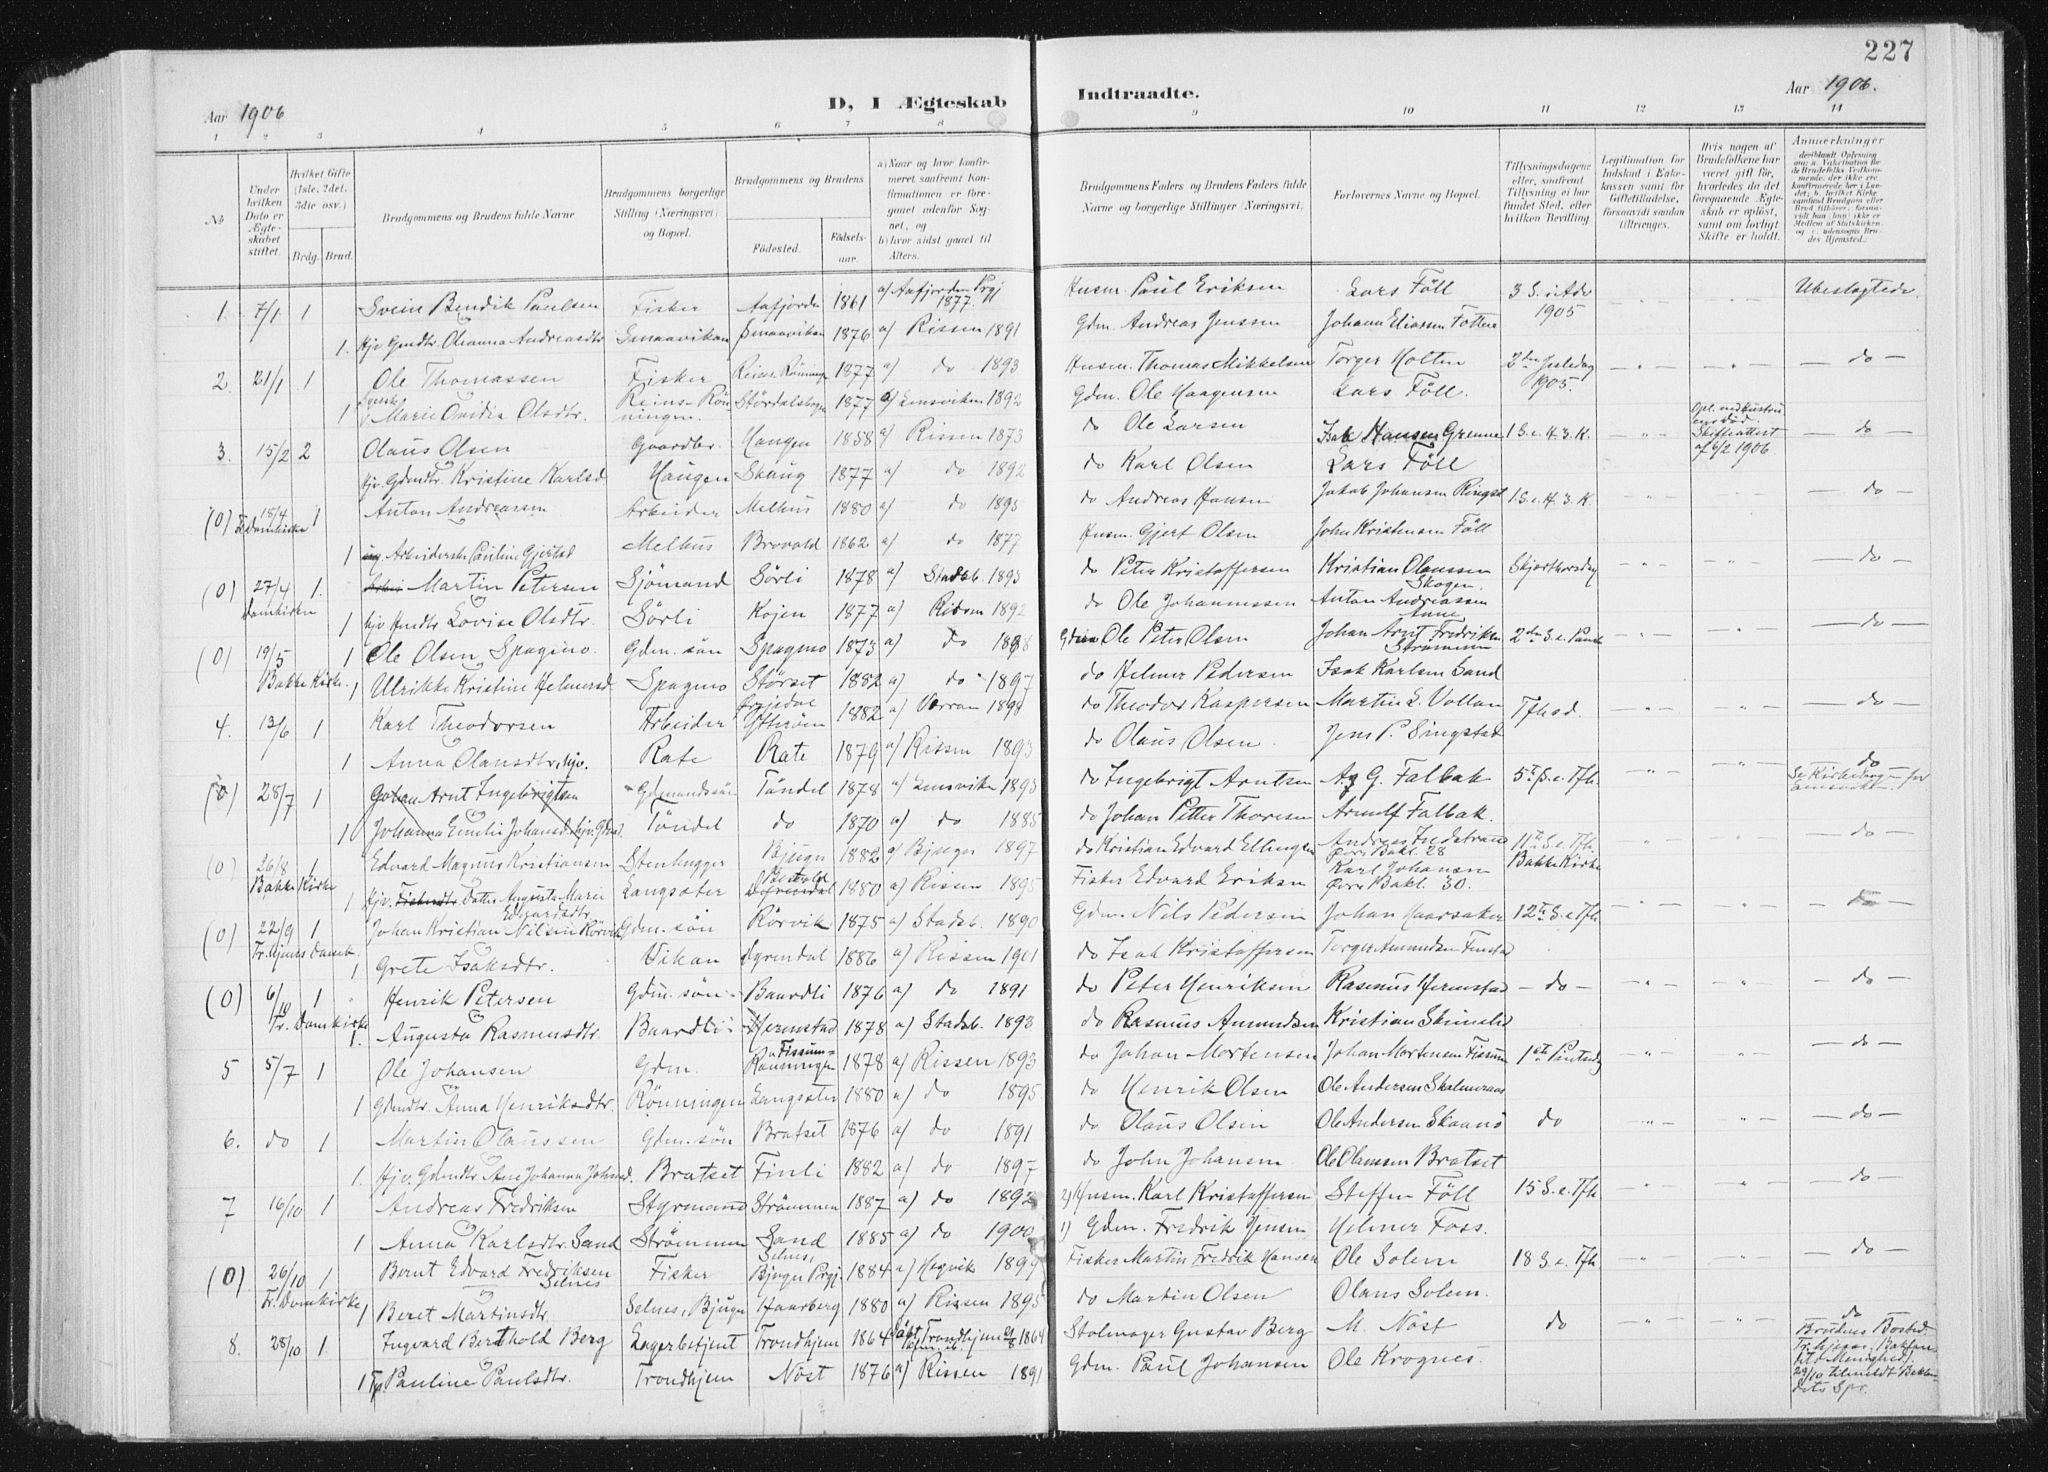 227
Aar 1906
D, I Ægteskab
Indtraadte.
Aar 1906.
1 2 3 4 5 6 7 8 9 10 11 12 13 14
No
Under hvilken Dato er Ægteskabet stiftet.
Hvilket Gifte (1ste, 2det, 3die osv.)
Brdg. Brud.
Brudgommens og Brudens fulde Navne
Brudgommens borgerlige Stilling (Næringsvei) og Bopæl.
Brudgommens og Brudens
Födested.
Födselsaar.
a) Naar og hvor konfirmeret saafremt Konfirmationen er foregaaet udenfor Sognet, og
b) hvor sidst gaaet til Alters.
Brudgommens Faders og Brudens Faders fulde Navne og borgerlige Stillinger (Næringsvei).
Forlovernes Navne og Bopæl.
Tillysningsdagene eller, saafremt Tillysning ei har fundet Sted, efter hvilken Bevilling.
Legitimation for Indskud i Enkekassen samt for Giftetilladelse, forsaavidt saadan tiltrænges.
Hvis nogen af Brudefolkene har været gift før, hvorledes da det foregaaende Ægteskab er oplöst, samt om lovligt Skifte er holdt.
Anmærkninger
1. 7/1 1 Svein Bendik Paulsen Fisker Aafjorden 1861 a) Aafjorden Prgj 1877 Husm. Paul Eriksen Lars Föll 3 S. i Adv 1905 Ubeslægtede
1. Hjv Gmdtr. Oleanna Andreasdtr Smaaviken Smaaviken 1876 a) Rissen 1891 Gdm. Andreas Jenssen Johann Eliassen
2 21/1 1 Ole Thomassen Fisker Reins Rönningen 1877 a) do 1893 Husm. Thomas Mikkelsen Torger Holten 2den Juledag 1905. do
1 Marie Ovidia Olsdtr. Reins-Rönningen Stördalsbogen 1877 a) Lensviken 1892 Gdm. Ole Haagensen Lars Föll.
3. 15/2 2 Olaus Olsen Gaardbr. Haugen 1858 a) Rissen 1873 do Ole Larsen Isak Hansen Grenne 1 S. e. H. 3. K. Skifteattest af 6/2 1906 do
Hjv. Gdmdtr. Kristine Karlsd Haugen Skaug 1877 a) do 1892 do Karl Olsen Lars Föll
(0) 18/4 Domkirke 1 Anton Andreassen Arbeider Melhus 1880 a) do 1895 do Andreas Hansen Jakob Johansen Ringst 1 S. e. H. 3. K. do
1 Arbeiderske Pauline Gjertsd Melhus Brovold 1862 a) do 1877 Husm. Gjert Olsen John Kristensen Föll
(0) 27/4 Domkirken 1. Martin Petersen Sjömand Sörli 1878 a) Stadsb. 1893 do Peter Kristoffersen Kristian Olaussen Skogen Skjærthorsdag do
1 Hjv Hmdtr Lovise Olsdtr. Sörli Kojen 1877 a) Rissen 1892 do Ole Johannessen Anton Andreassen
(0) 19/5 Bakke Kirke. 1 Ole Olsen Spagmo. Gdm. sön Spagmo 1873 a) do 1888 Ole Peter Olsen Johan Arnt Fredriksen Strömmen 2den S. e. Paaske do
1 Ulrikke Kristine Helmersd Spagmo Störset 1882 a) do 1897 do Helmer Pedersen Isak Karlsen Sand
4. 13/6 1 Karl Theodorsen Arbeider Ytteröen 1882 a) Verran 1898 do Theodor Kaspersen Martin L. Vollan Tfhsd. do
1 Anna Olausdtr, hjv. Rate Rate 1879 a) Rissen 1893 do Olaus Olsen. Jens P. Singstad
(0) 28/7 1 Johan Arnt Ingebrigtsen Gdmandssön Töndel 1878 a) Lensvik 1893 do Ingebrigt Arntsen A. G. Falbak 5te S. e. Tfh. do
1 Johanna Emelie Johansd hjv. Gdm. Töndel do 1870 a) do 1885 do Johan Petter Thoresen Arnulf Falbak.
(0) 26/8 Bakke Kirke 1 Edvard Magnus Kristiansen Stenhugger Bjugn 1882 a) Bjugn 1897 do Kristian Edvard Ellingsen Andreas Indstrand Övre Bakl. 28 11te S. e. Tfh. Bakke Kirke do
1 Hjv. Fiskerdtr. Datter Augusta Marie Edvardsdtr. Langsæter 1880 a) Rissen 1895 Fisker Edvard Eriksen Karl Johansen Övre Bakl. 30.
(0) 22/9 Tr.hjems Domk. 1 Johan Kristian Nilsen Rörvik Gdm. sön Rörvik 1875 a) Stadsb. 1890 Gdm. Nils Pedersen Johan Haarsaker 12te S. e. Tfh. do
1 Grete Isaksdtr. Vikan Dyrendal 1886 a) Rissen 1901 do Isak Kristoffersen Torger Amundsen Fenstad
(0) 6/10 Tr. Domkirke 1 Henrik Petersen Gdm. sön Baardli 1876 a) do 1891 do Peter Henriksen Rasmus Hermstad do do
1. Augusta Rasmusdtr. Baardli Hermstad 1878 a) Stadsb. 1893 do Rasmus Amundsen Kristian Skinelid
5 5/7 1 Ole Johansen Gdm. Fissum-Rönningen 1878 a) Rissen 1893 do Johan Mortensen Johan Mortensen Fissum 1ste Pintsedag do
1 Gdmdtr. Anna Henriksdtr. Rönningen Langsæter 1880 a) do 1895 do Henrik Olsen Ole Andersen
6. do 1 Martin Olaussen Gdm. sön Bratset 1876 a) do 1891 do Olaus Olsen Ole Andersen do do
1. Hjv. Gdmdtr Ane Johanna Johnsd. Bratset Finli 1882 a) do 1897 do John Johansen Ole Olaussen Bratset
7 16/10 1 Andreas Fredriksen Styrmand Strömmen 1887 a) do 1892 2) Husm. Karl Kristoffersen Steffen Föll 15 S. e. Tfh. do
1 Anna Karlsdtr. Sand Strömmen Sand 1885 a) do 1900 1) Gdm. Fredrik Jensen Helmer Foss.
(0) 26/10 Tr. Domkirke 1 Bernt Edvard Fredriksen Selnes Fisker Selnes, Bjugn Prgj. 1884 a) Hegvik 1899 Fisker Martin Fredrik Hansen Ole Solem 18 S. e. Tfh. do
1 Beret Martinsdtr Selnes, Bjugn Haarberg 1880 a) Rissen 1895 do Martin Olsen Olaus Solem.
8. 28/10 1 Ingvard Berthold Berg Lagerbetjent Trondhjem 1864 Trondhjem 1864 Stolmager Gustav Berg M. Nöst do do Brudens Bosted. Tr.hjem, Baklandets Menighed. 29/10 tilmeldt Baklandets Spr.
1 Pauline Paulsdtr. Trondhjem Nöst 1876 a) Rissen 1891 Gdm. Paul Johansen Ole Krognes.